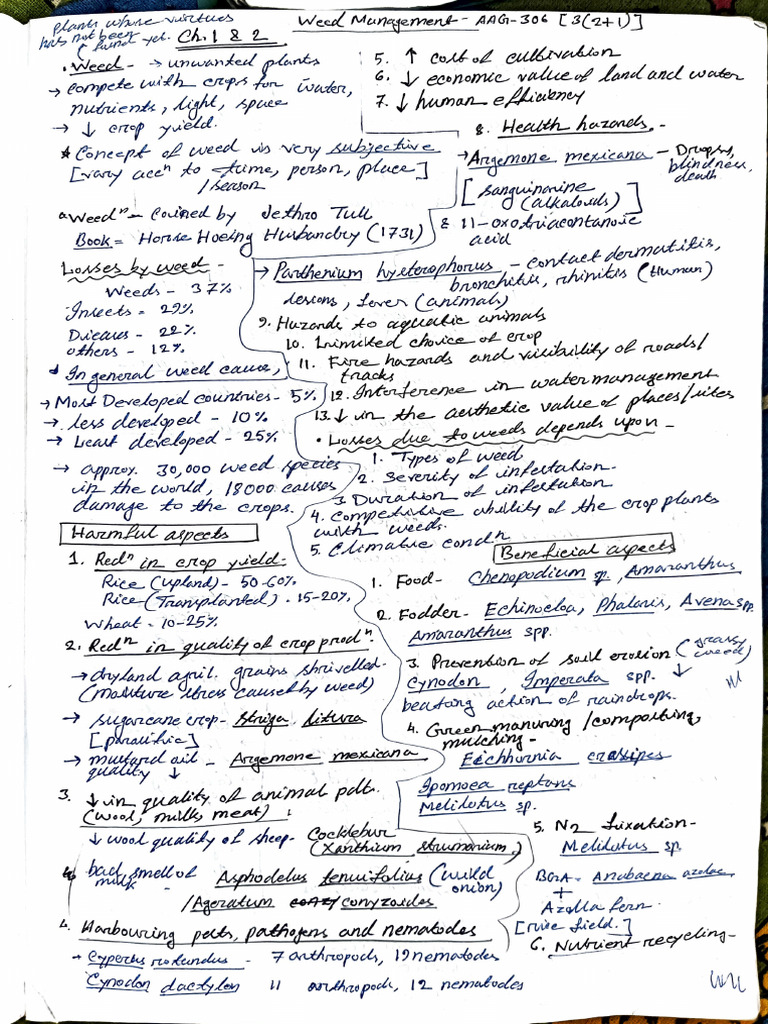 plants whose virtues
has not been found yet.
Weed Management - AAG-306 [3(2+1)]
Ch. 1 & 2
• Weed - → unwanted plants
→ compete with crops for water,
nutrients, light, space
→ ↓ crop yield.
* Concept of weed is very subjective
[vary accⁿ to time, person, place]
/season
a. Weedⁿ - Coined by Jethro Tull
Book = Horse Hoeing Husbandry (1731)
Losses by weed -
Weeds - 37%
Insects - 29%
Diseases - 22%
others - 12%
In general weed cause,
→ Most Developed countries - 5%
→ less developed - 10%
→ Least developed - 25%
→ approx. 30,000 weed species
in the world, 18000 causes
damage to the crops.
Harmful aspects
1. Redⁿ in crop yield:
Rice (Upland) - 50-60%
Rice (Transplanted) - 15-20%
Wheat - 10-25%
2. Redⁿ in quality of crop prodⁿ.
→ dryland agril. grains shrivelled
(moisture stress caused by weed)
→ sugarcane crop - Striga litura
[parasitic]
→ mustard oil - Argemone mexicana
quality ↓
3. ↓ in quality of animal pdt.
(wool, milk, meat)
↓ wool quality of sheep - Cocklebur
(Xanthium strumarium)
bad smell of milk - Asphodelus tenuifolius (wild onion)
/Ageratum conyzoides
4. Harbouring pests, pathogens and nematodes
- Cyperus rotundus - 7 anthropods, 19 nematodes
Cynodon dactylon 11 anthropods, 12 nematodes
5. ↑ cost of cultivation
6. ↓ economic value of land and water
7. ↓ human efficiency
8. Health hazards -
→ Argemone mexicana - Dropsy,
blindness,
death
[sanguinarine
(alkaloids)]
& 11-oxotriacontanoic
acid
→ Parthenium hysterophorus - contact dermatitis,
bronchitis, rhinitis (Human)
lesions, fever (animals)
9. Hazards to aquatic animals
10. Limited choice of crop
11. Fire hazards and visibility of roads/
tracks
12. Interference in water management
13. ↓ in the aesthetic value of places/sites
• Losses due to weeds depends upon -
1. Types of weed
2. Severity of infestation
3. Duration of infestation
4. Competitive ability of the crop plants
with weeds.
5. Climatic condⁿ
Beneficial aspects
1. Food - Chenopodium sp., Amaranthus
2. Fodder - Echinocloa, Phalaris, Avena spp.
Amaranthus spp.
3. Prevention of soil erosion (grassy weed)
Cynodon, Imperata spp. ↓
beating action of raindrops.
4. Green manuring /composting,
mulching -
Eichhornia crassipes
Ipomoea reptans
Melilotus sp.
5. N2 fixation -
Melilotus sp.
BGA - Anabaena azolae
+
Azolla fern.
[rice field.]
6. Nutrient recycling -